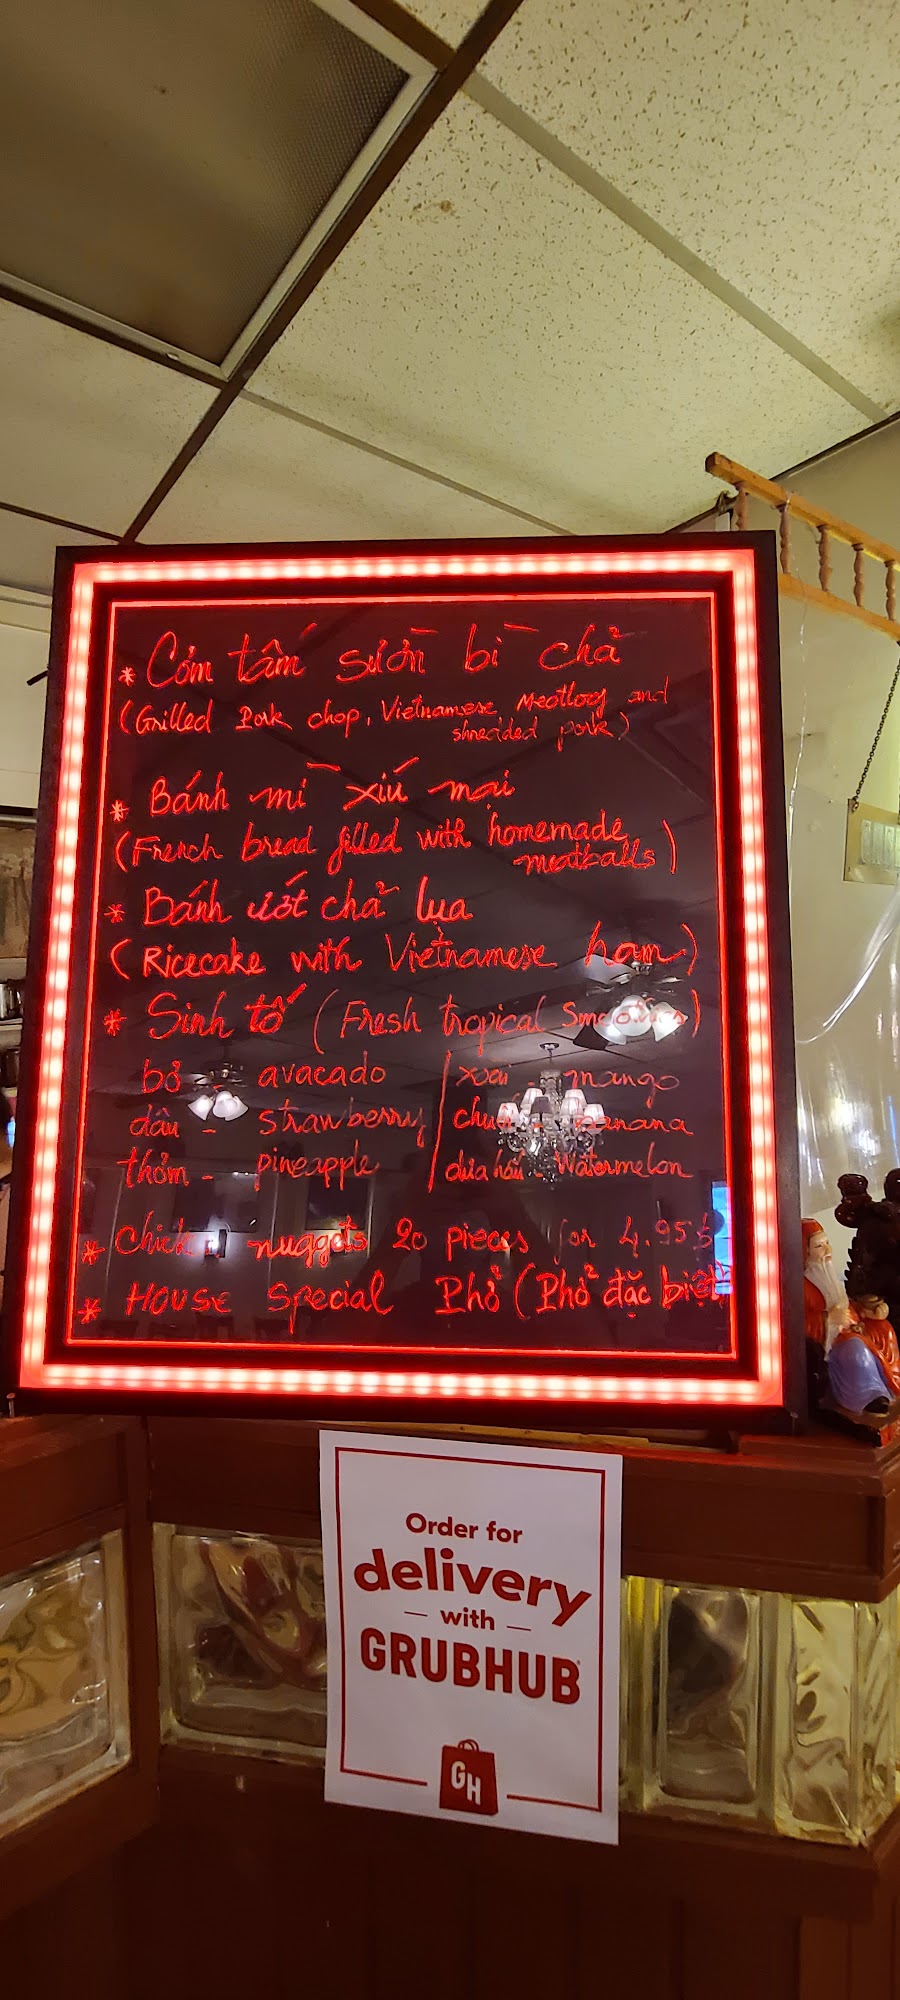 * Cơm tấm sườn bì chả
(Grilled Pork chop, Vietnamese Meatloaf and
shredded pork)
* Bánh mì xíu mại
(French bread filled with homemade
meatballs)
* Bánh ướt chả lụa
(Ricecake with Vietnamese ham)
* Sinh tố (Fresh tropical
bơ - avacado | xoài - mango
dâu - strawberry | banana
thơm - pineapple | dưa hấu - Watermelon
* nuggets 20 pieces for 4.95$
* HOUSE Special Phở (Phở đặc biệt)
Order for
delivery
— with —
GRUBHUB
GH